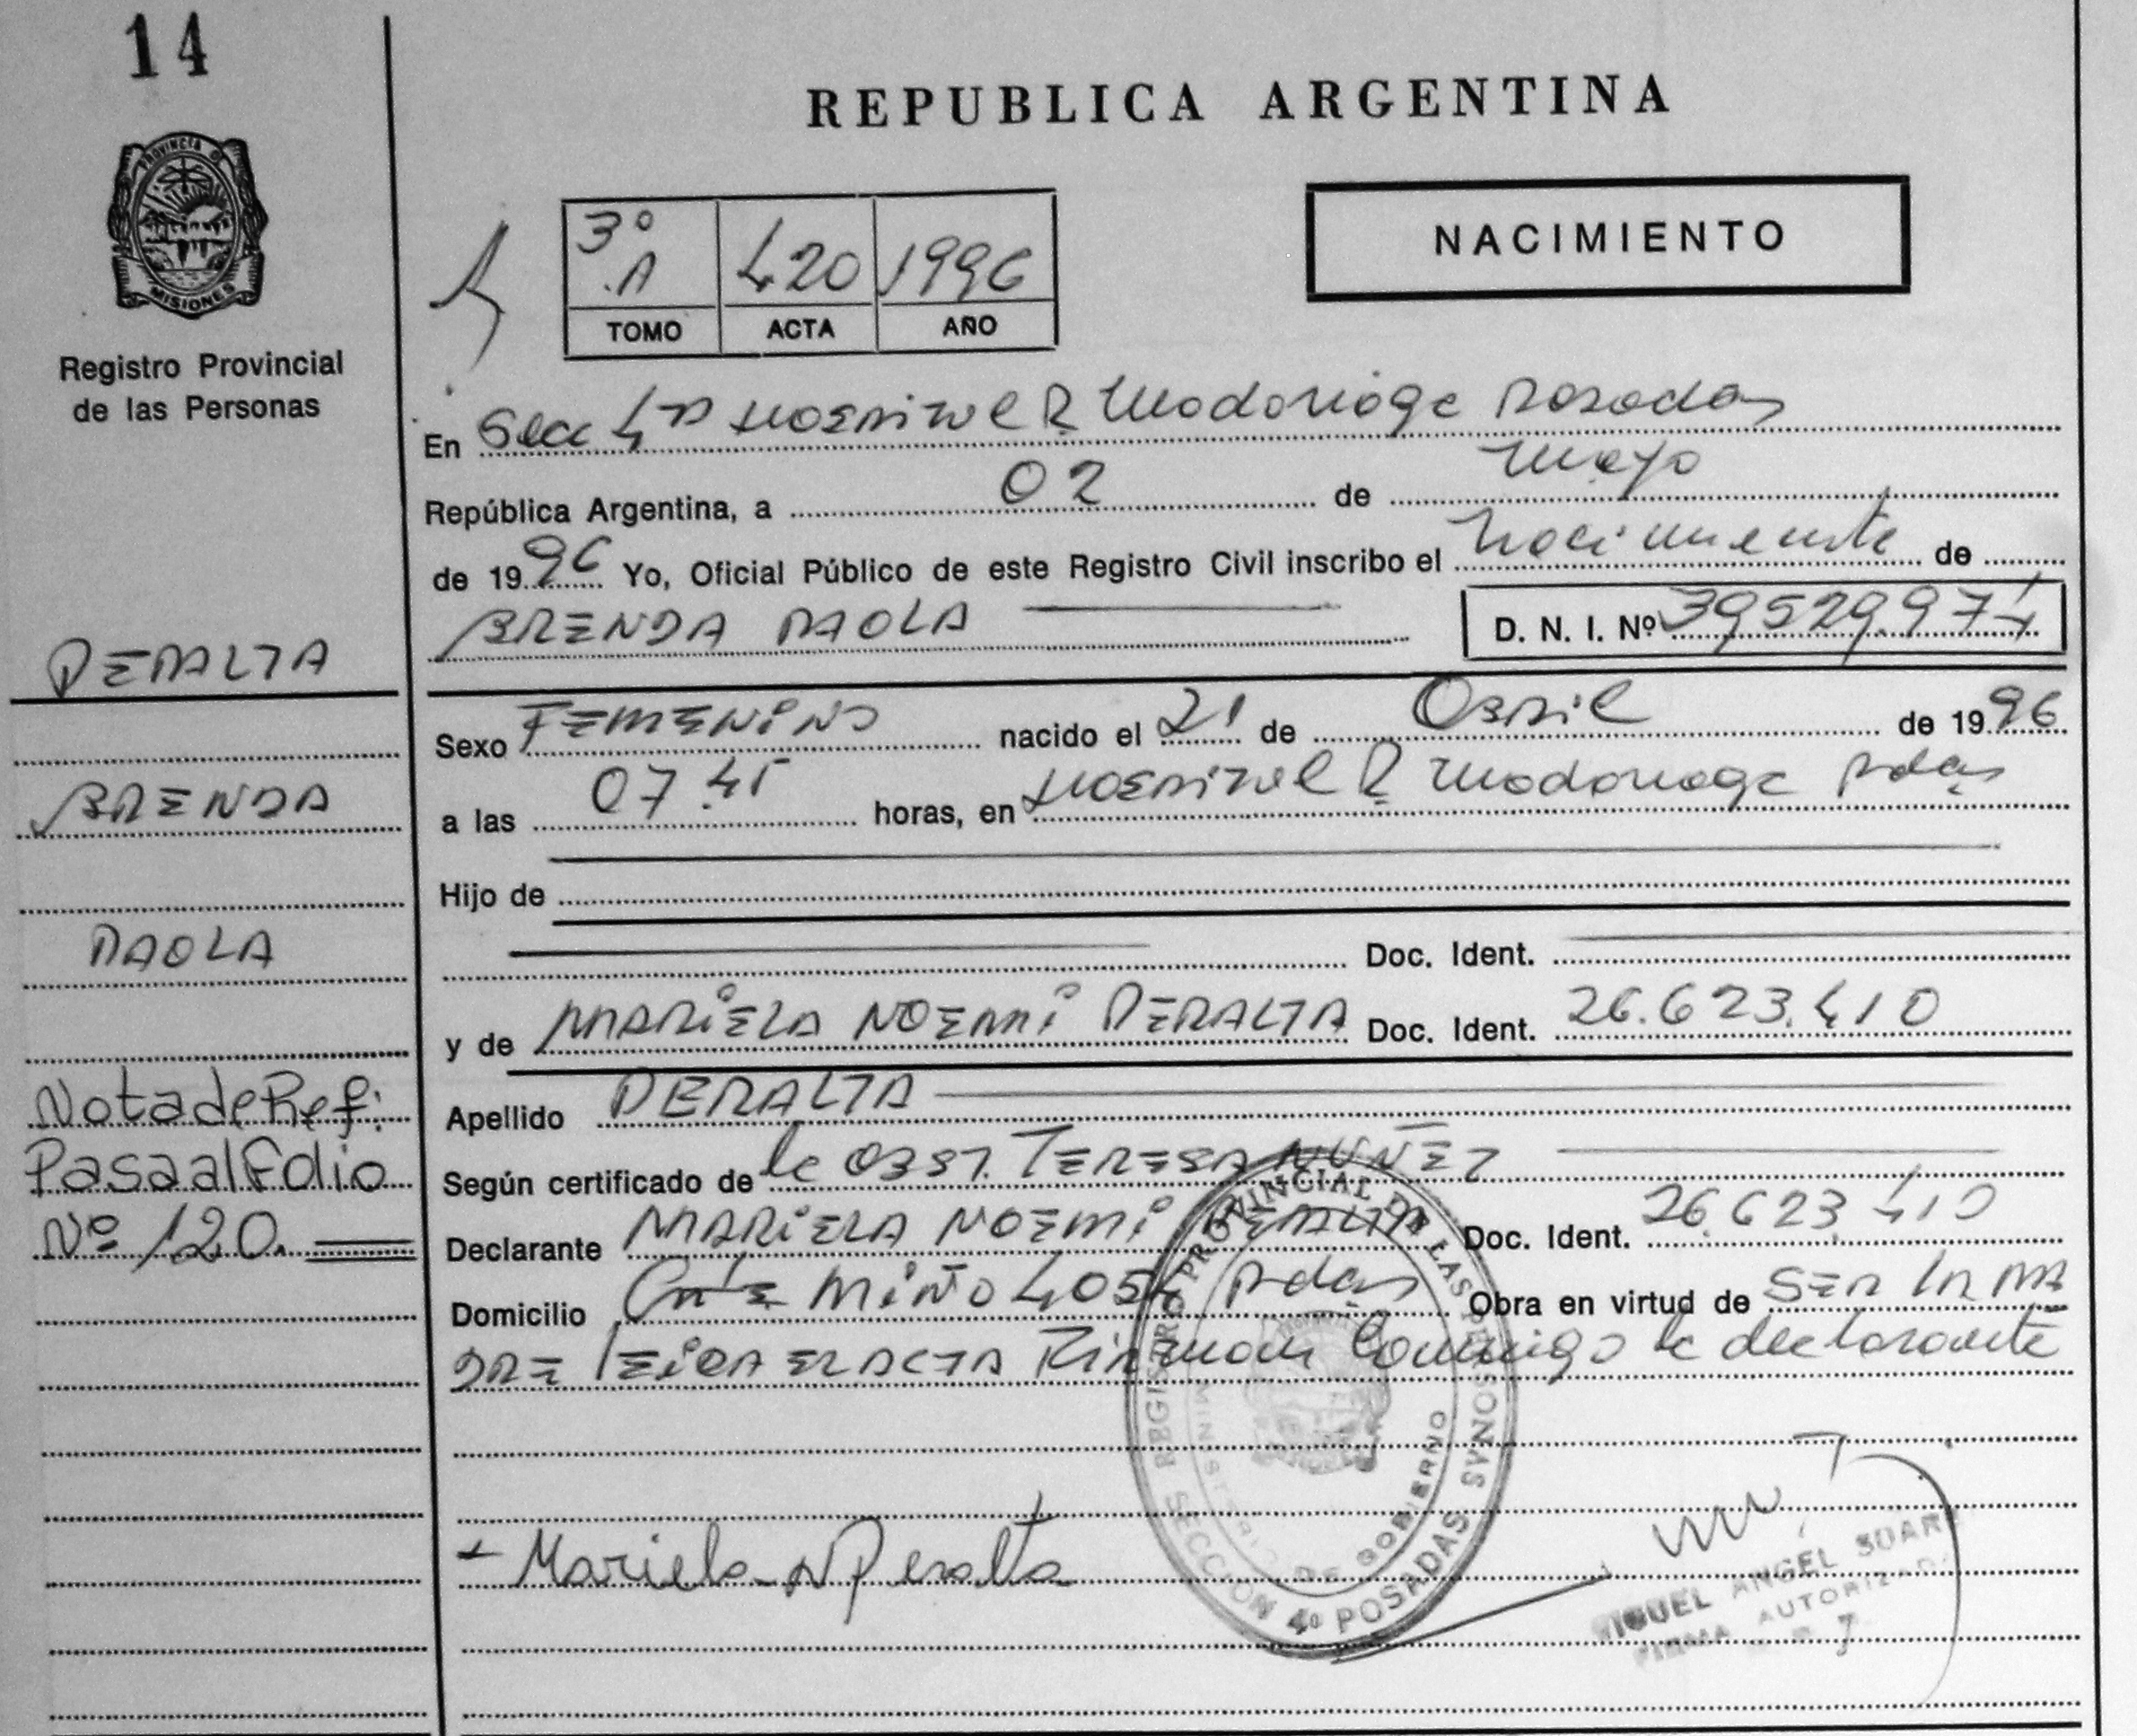 14
REPUBLICA ARGENTINA
PROVINCIA D
MISIONES
Registro Provincial
de las Personas
NACIMIENTO
3º A 420 1996
TOMO ACTA AÑO
En Secc 4ta Hospital R Madariaga Posadas
República Argentina, a 02 de mayo
de 1996 Yo, Oficial Público de este Registro Civil inscribo el Nacimiento de
BRENDA PAOLA D. N. I. Nº 39529.974
PERALTA
BRENDA
PAOLA
Nota de Ref:
Pasa al Folio
Nº 120.
Sexo FEMENINO nacido el 21 de Abril de 1996
a las 07.45 horas, en Hospital R Madariaga Pdas
Hijo de
Doc. Ident.
y de MARIELA NOEMI PERALTA Doc. Ident. 26.623.410
Apellido PERALTA
Según certificado de la OBST. TERESA NUÑEZ
Declarante MARIELA NOEMI PERALTA Doc. Ident. 26.623.410
Domicilio MIÑO 4054 Pdas Obra en virtud de SER LA MA
DRE LEIDA EL ACTA Firman Conmigo la declarante
REGISTRO PROVINCIAL DE LAS PERSONAS
MINISTERIO DE GOBIERNO
SECCION 4º POSADAS
Mariela N Peralta
MIGUEL ANGEL SUAREZ
FIRMA AUTORIZADA